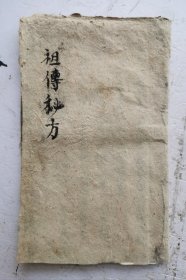 祖傳秘方